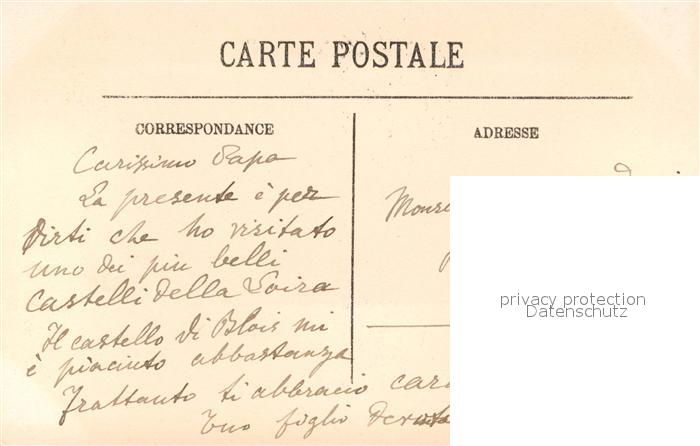 CARTE POSTALE
CORRESPONDANCE
ADRESSE
Carissimo Papa
La presente è per
dirti che ho visitato
uno dei piu belli
Castelli della Loira
Il castello di Blois mi
è piaciuto abbastanza
Frattanto ti abbracio
Tuo figlio
privacy protection
Datenschutz